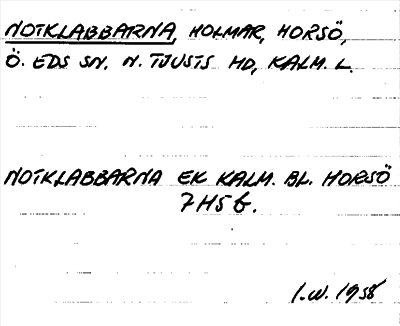 NOTKLABBARNA, HOLMAR, HORSÖ,
Ö. EDS SN. N. TJUSTS HD, KALM. L.
NOTKLABBARNA EK KALM. BL. HORSÖ
7H5b.
I.W. 1958